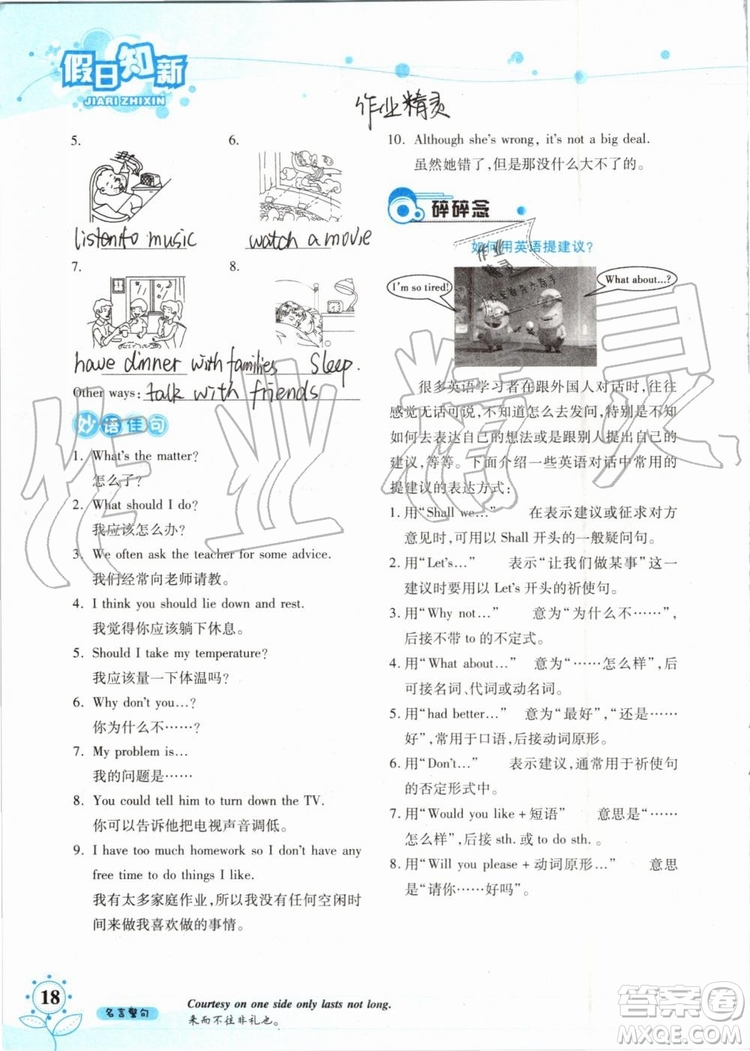 假日知新
JIARI ZHIXIN
作业精灵
5.
6.
listen to music
watch a movie
7.
8.
have dinner with families
Sleep.
Other ways: talk with friends
妙语佳句
1. What's the matter?
怎么了?
2. What should I do?
我应该怎么办?
3. We often ask the teacher for some advice.
我们经常向老师请教。
4. I think you should lie down and rest.
我觉得你应该躺下休息。
5. Should I take my temperature?
我应该量一下体温吗?
6. Why don't you…?
你为什么不……?
7. My problem is…
我的问题是……
8. You could tell him to turn down the TV.
你可以告诉他把电视声音调低。
9. I have too much homework so I don't have any
free time to do things I like.
我有太多家庭作业,所以我没有任何空闲时
间来做我喜欢做的事情。
10. Although she's wrong, it's not a big deal.
虽然她错了,但是那没什么大不了的。
碎碎念
如何用英语提建议?
作业
精灵
I'm so tired!
What about…?
很多英语学习者在跟外国人对话时,往往
感觉无话可说,不知道怎么去发问,特别是不知
如何去表达自己的想法或是跟别人提出自己的
建议,等等。下面介绍一些英语对话中常用的
提建议的表达方式:
1. 用“Shall we…” 在表示建议或征求对方
意见时,可用以 Shall 开头的一般疑问句。
2. 用“Let's…” 表示“让我们做某事”这一
建议时可使用以 Let's 开头的祈使句。
3. 用“Why not…” 意为“为什么不……”,
后接不带 to 的不定式。
4. 用“What about…” 意为“……怎么样”,后
可接名词、代词或动名词。
5. 用“had better…” 意为“最好”,“还是……
好”,常用于口语,后接动词原形。
6. 用“Don't…” 表示建议,常用于祈使句
的否定形式中。
7. 用“Would you like + 短语” 意思是“……
怎么样”,后接 sth. 或 to do sth.
8. 用“Will you please + 动词原形…” 意思
是“请你……好吗”。
作业精灵
18
名言警句
Courtesy on one side only lasts not long.
来而不往非礼也。
答案圈
MXQE.COM